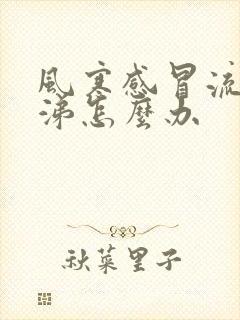 風寒感冒流
涕怎麼办
秋菜里子